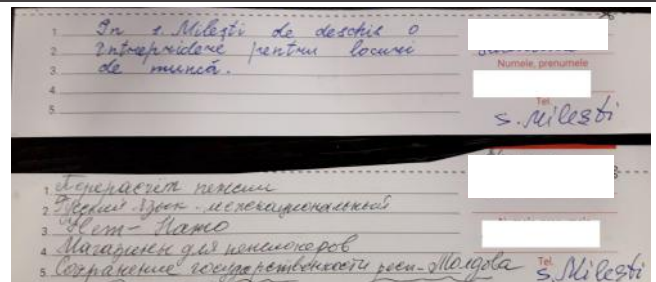 1. In s. Milești de deschis o
2. întrepridere pentru locuri
3. de muncă.
4.
5.
Numele, prenumele
Tel.
s. Milești
1. Перерасчёт пенсии
2. Русский язык - межнациональный
3. Нет - Нато
4. Магазины для пенсионеров
5. Сохранение государственности респ. Молдова
Tel.
s. Milești